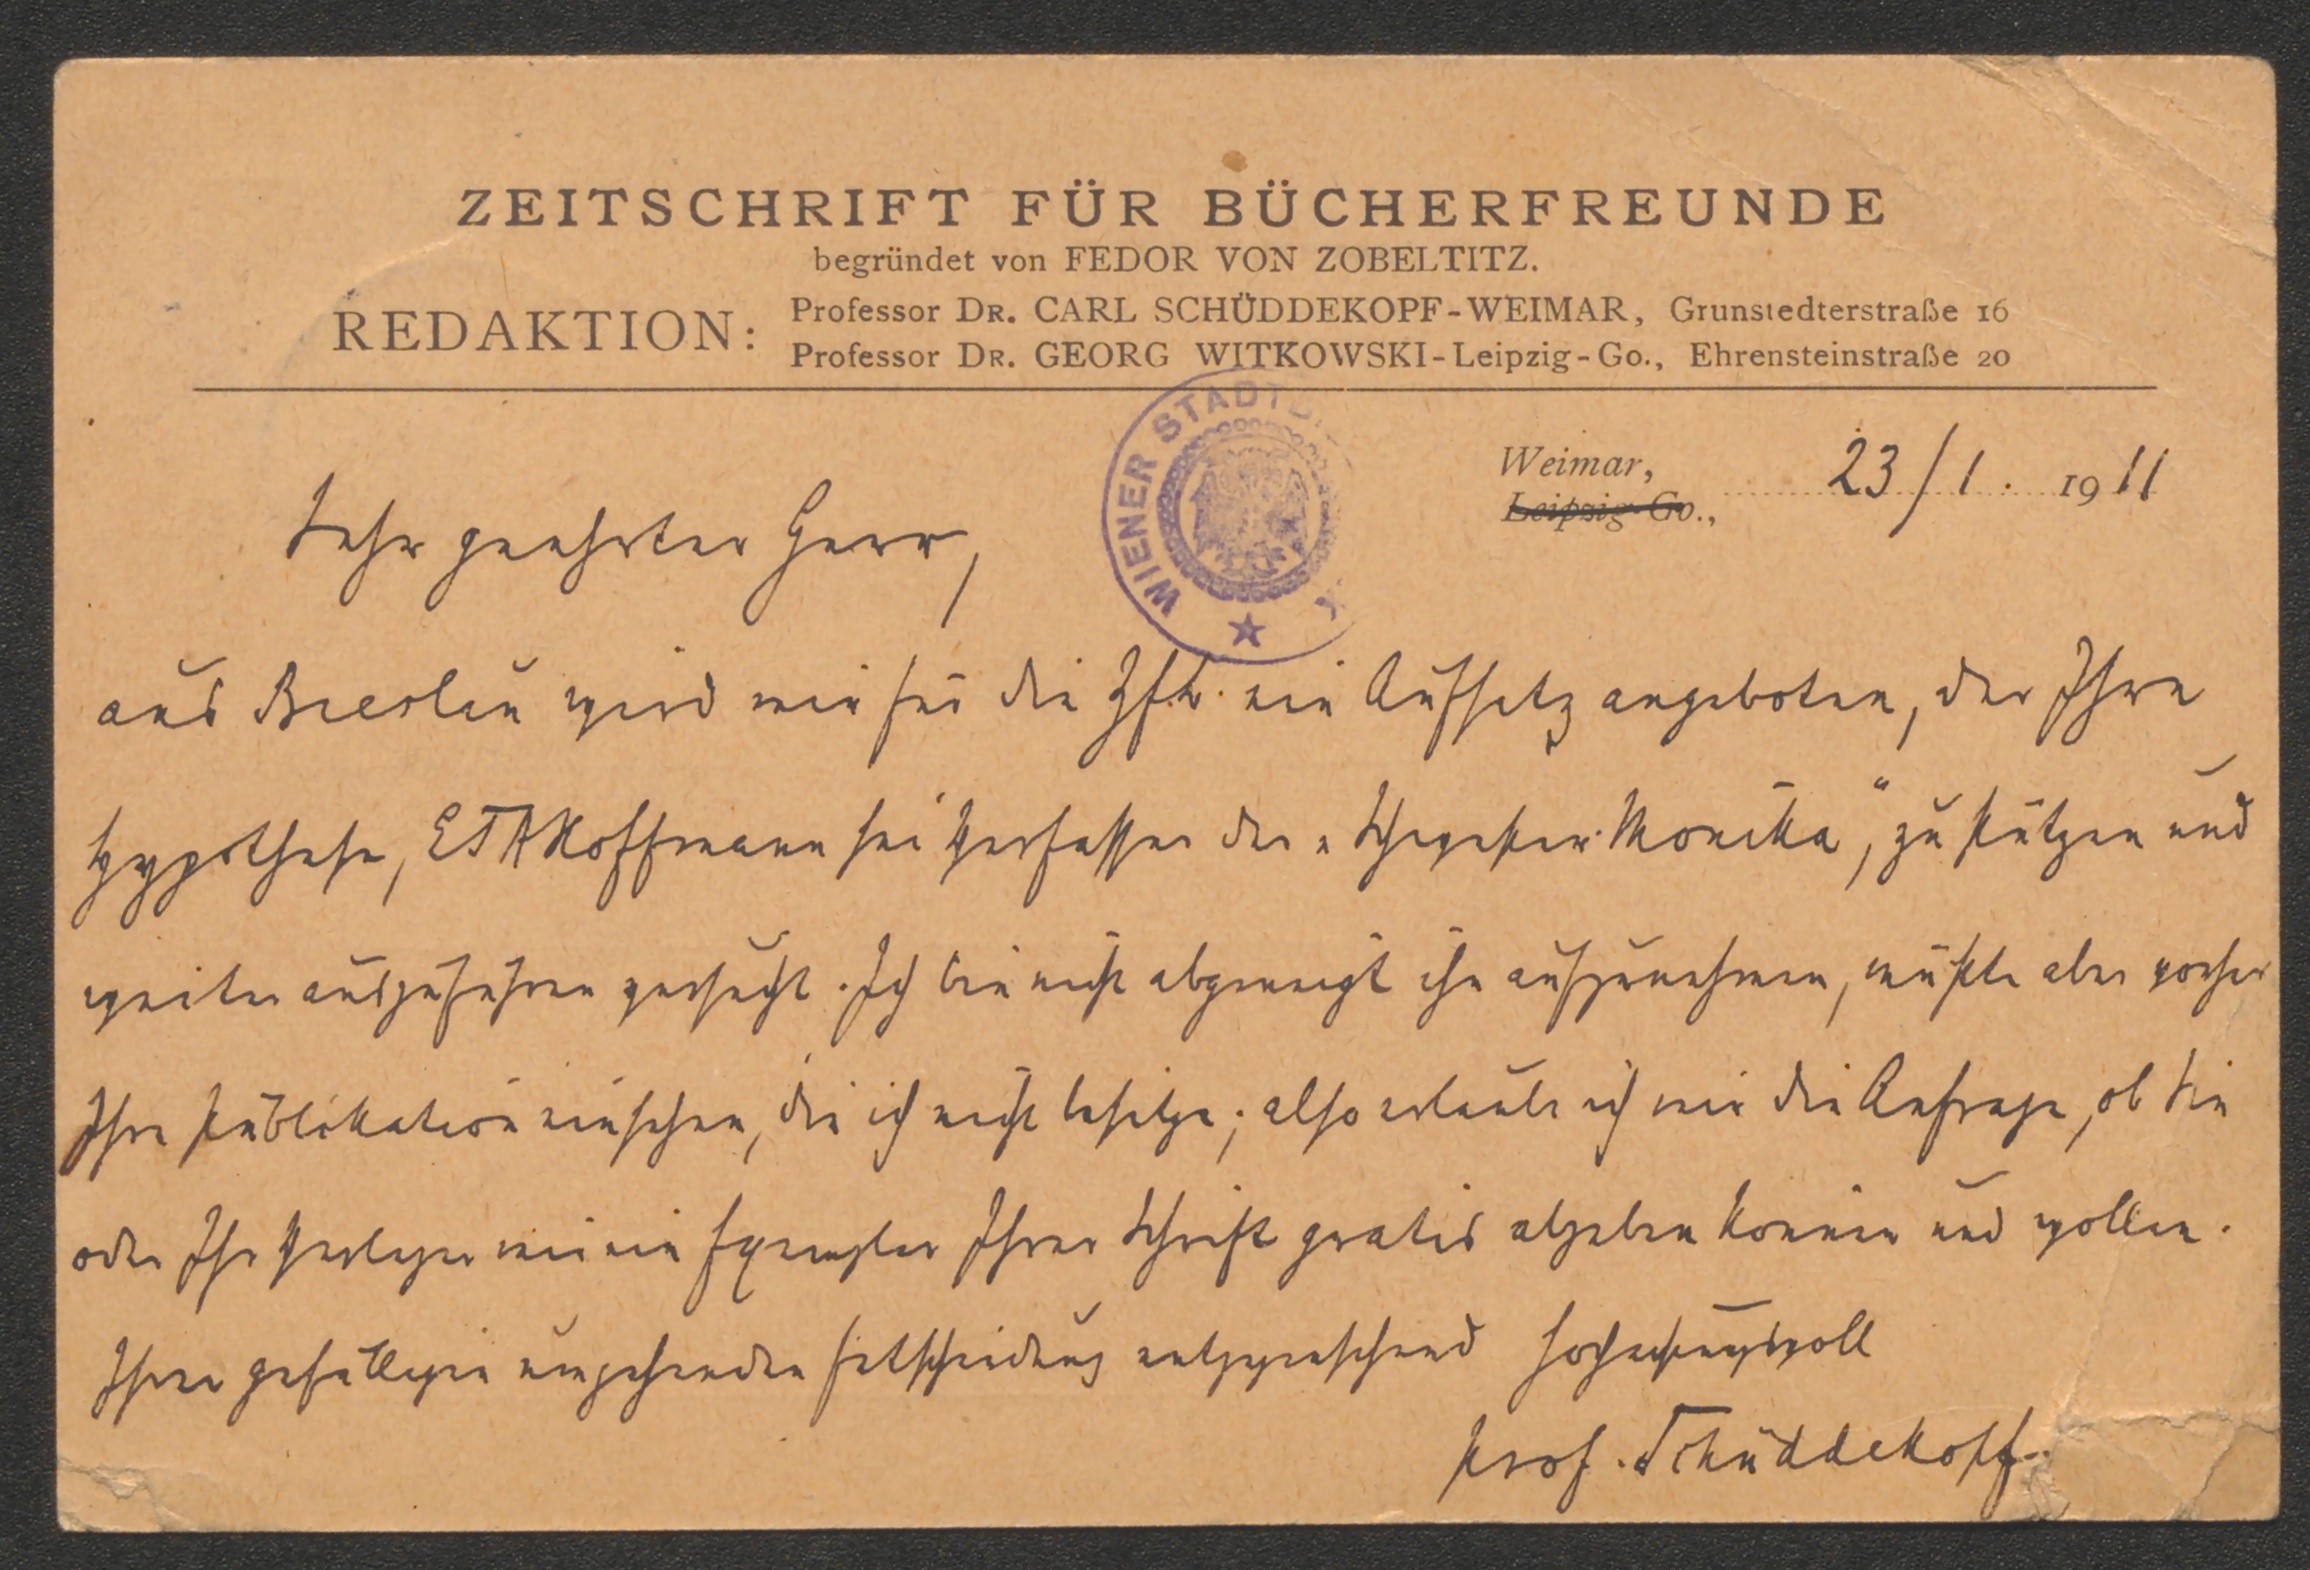 ZEITSCHRIFT FÜR BÜCHERFREUNDE
begründet von FEDOR VON ZOBELTITZ.
REDAKTION:
Professor DR. CARL SCHÜDDEKOPF-WEIMAR, Grunstedterstraße 16
Professor DR. GEORG WITKOWSKI-Leipzig-Go., Ehrensteinstraße 20
WIENER STADT
Weimar,
Leipzig-Go., 23/1. 1911
Sehr geehrter Herr,
aus Breslau wird mir für die ZfB. ein Aufsatz angeboten, der Ihre
Hypothese, ETAHoffmann sei Verfasser der „Schwester Monika“, zu stützen und
weiter auszuführen versucht. Ich bin nicht abgeneigt ihn aufzunehmen, müßte aber vorher
Ihre Publikation einsehen, die ich nicht besitze; also erlaube ich mir die Anfrage, ob Sie
oder Ihr Verleger mir ein Exemplar Ihrer Schrift gratis abgeben können und wollen.
Ihrer gefälligen umgehenden Entscheidung entgegensehend hochachtungsvoll
Prof. Schüddekopf.